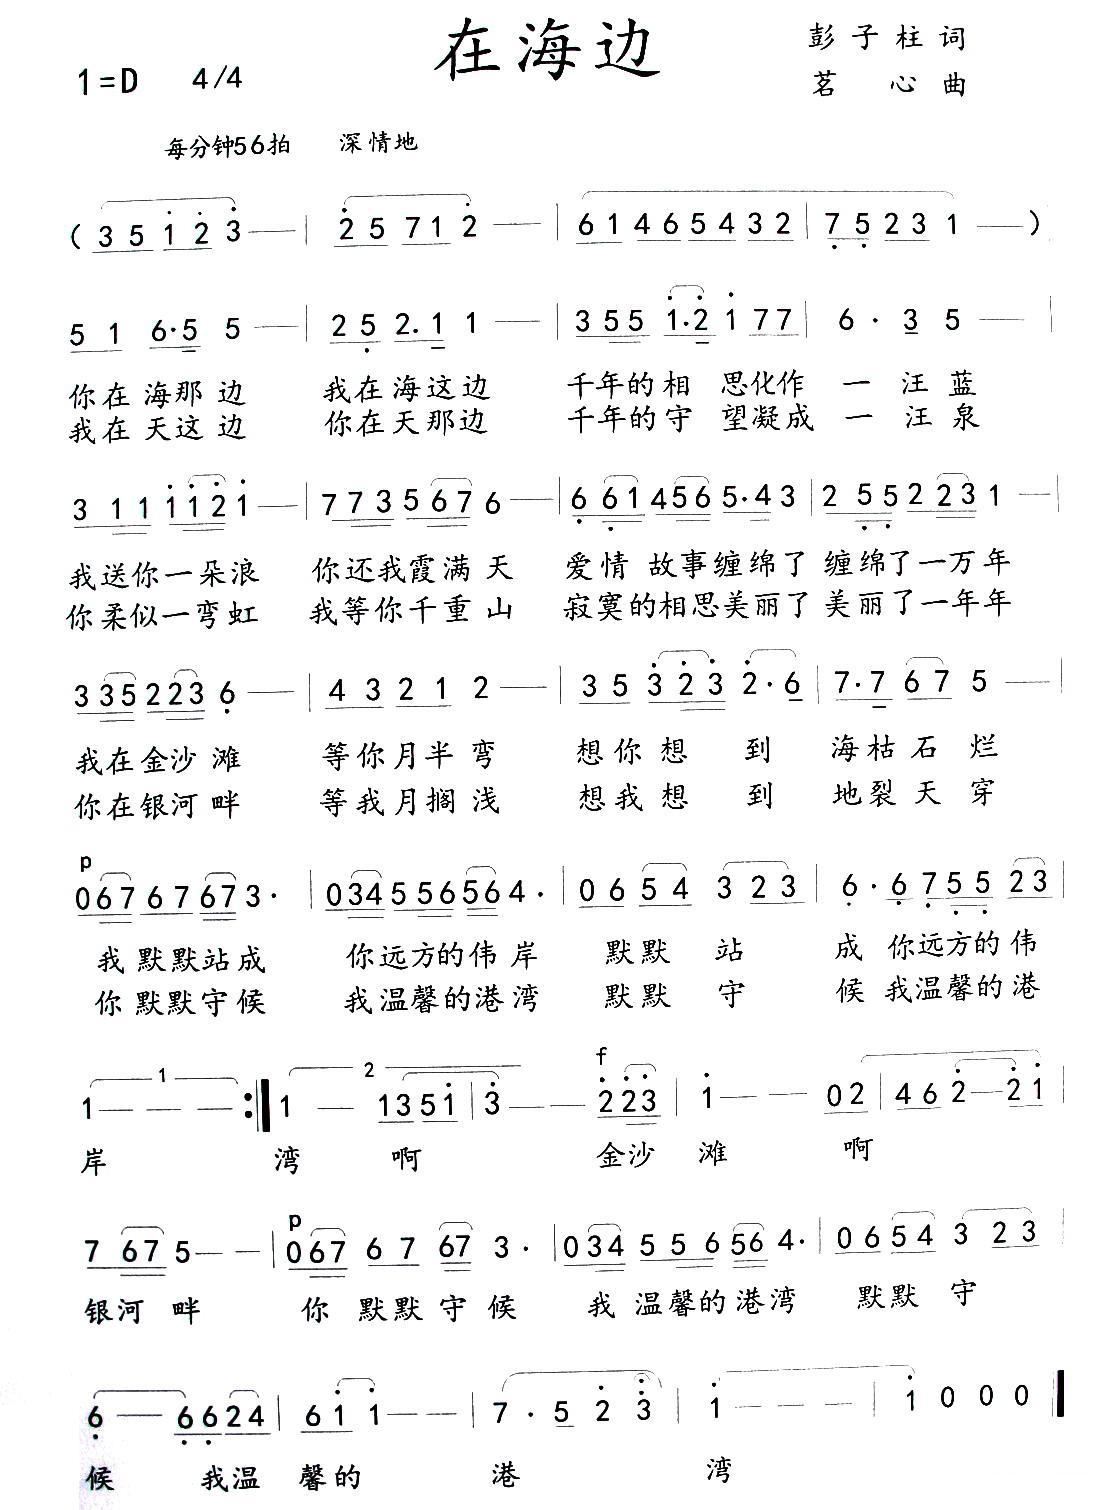 在海边
彭子柱词
1=D 4/4
茗心曲
每分钟56拍 深情地
(3 5 1 2 3 — | 2 5 7 1 2 — | 6 1 4 6 5 4 3 2 | 7 5 2 3 1 —)
5 1 6·5 5 — | 2 5 2.1 1 — | 3 5 5 1·2 1 7 7 | 6· 3 5 — |
你在海那边 我在海这边 千年的相 思化作 一 汪蓝
我在天这边 你在天那边 千年的守 望凝成 一 汪泉
3 1 1 1 1 2 1 | 7 7 3 5 6 7 6 — | 6 6 1 4 5 6 5·4 3 | 2 5 5 2 2 3 1 — |
我送你一朵浪 你还我霞满天 爱情 故事缠绵了 缠绵了一万年
你柔似一弯虹 我等你千重山 寂寞的相思美丽了 美丽了一年年
3 3 5 2 2 3 6 — | 4 3 2 1 2 — | 3 5 3 2 3 2·6 | 7·7 6 7 5 — |
我在金沙滩 等你月半弯 想你想 到 海枯石烂
你在银河畔 等我月搁浅 想我想 到 地裂天穿
p
0 6 7 6 7 6 7 3· | 0 3 4 5 5 6 5 6 4· | 0 6 5 4 3 2 3 | 6· 6 7 5 5 2 3 |
我默默站成 你远方的伟岸 默默 站 成 你远方的伟
你默默守候 我温馨的港湾 默默 守 候 我温馨的港
1 2 f
1 — — — :‖ 1 — 1 3 5 1 | 3 — — 2 2 3 | 1 — — 0 2 | 4 6 2 — 2 1 |
岸 湾 啊 金沙 滩 啊
p
7 6 7 5 — — | 0 6 7 6 7 6 7 3· | 0 3 4 5 5 6 5 6 4· | 0 6 5 4 3 2 3 |
银河 畔 你 默默守候 我 温馨的港湾 默默 守
6 — 6 6 2 4 | 6 1 1 — — | 7· 5 2 3 | 1 — — — | 1 0 0 0 ‖
候 我温 馨的 港 湾